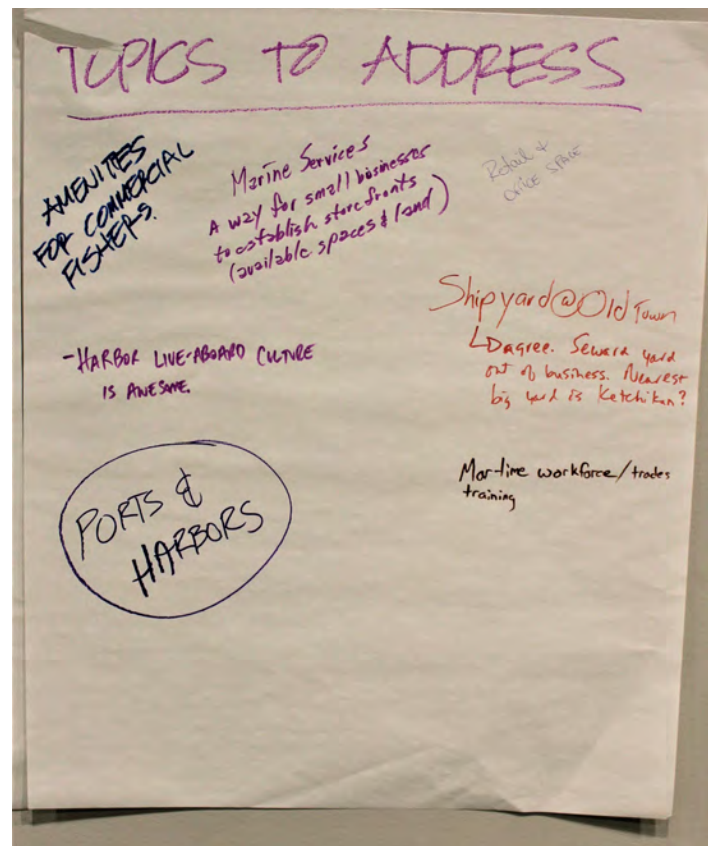 TOPICS TO ADDRESS
AMENITIES
FOR COMMERCIAL
FISHERS.
Marine Services
A way for small businesses
to establish storefronts
(available spaces & land)
Retail +
office SPACE
Shipyard@Old Town
Dagree. Seward yard
out of business. Nearest
big yard is Ketchikan?
-HARBOR LIVE-ABOARD CULTURE
IS AWESOME.
Maritime workforce/trades
training
PORTS &
HARBORS